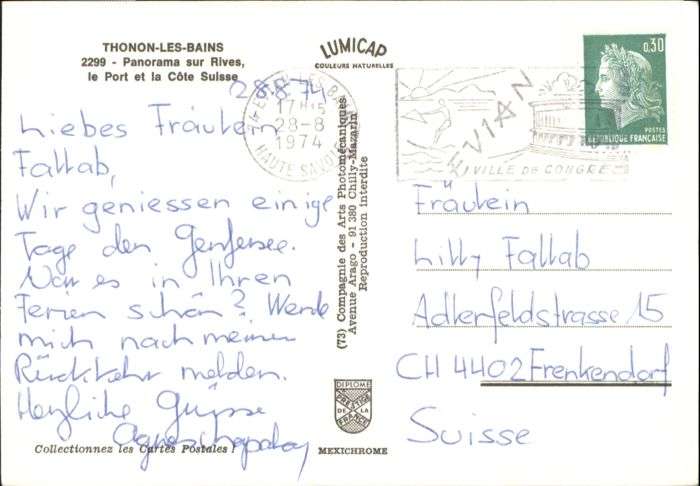 THONON-LES-BAINS
2299 - Panorama sur Rives,
le Port et la Côte Suisse
LUMICAP
COULEURS NATURELLES
0,30
POSTES
REPUBLIQUE FRANÇAISE
17H15
28-8
1974
HAUTE SAVOIE
EVIAN
VILLE DE CONGRE
28.8.74
Liebes Fräulein
Fallab,
Wir geniessen einige
Tage den Genfersee.
War es in Ihren
Ferien schön? Werde
mich nach meiner
Rückkehr melden.
Herzliche Grüsse
Agnes
(73) Compagnie des Arts Photomécaniques
Avenue Arago - 91 380 Chilly-Mazarin
Reproduction interdite
Fräulein
Lilly Fallab
Adlerfeldstrasse 15
CH 4402 Frenkendorf
Suisse
DIPLOME
PRESTIGE
DE LA
FRANCE
Collectionnez les Cartes Postales !
MEXICHROME